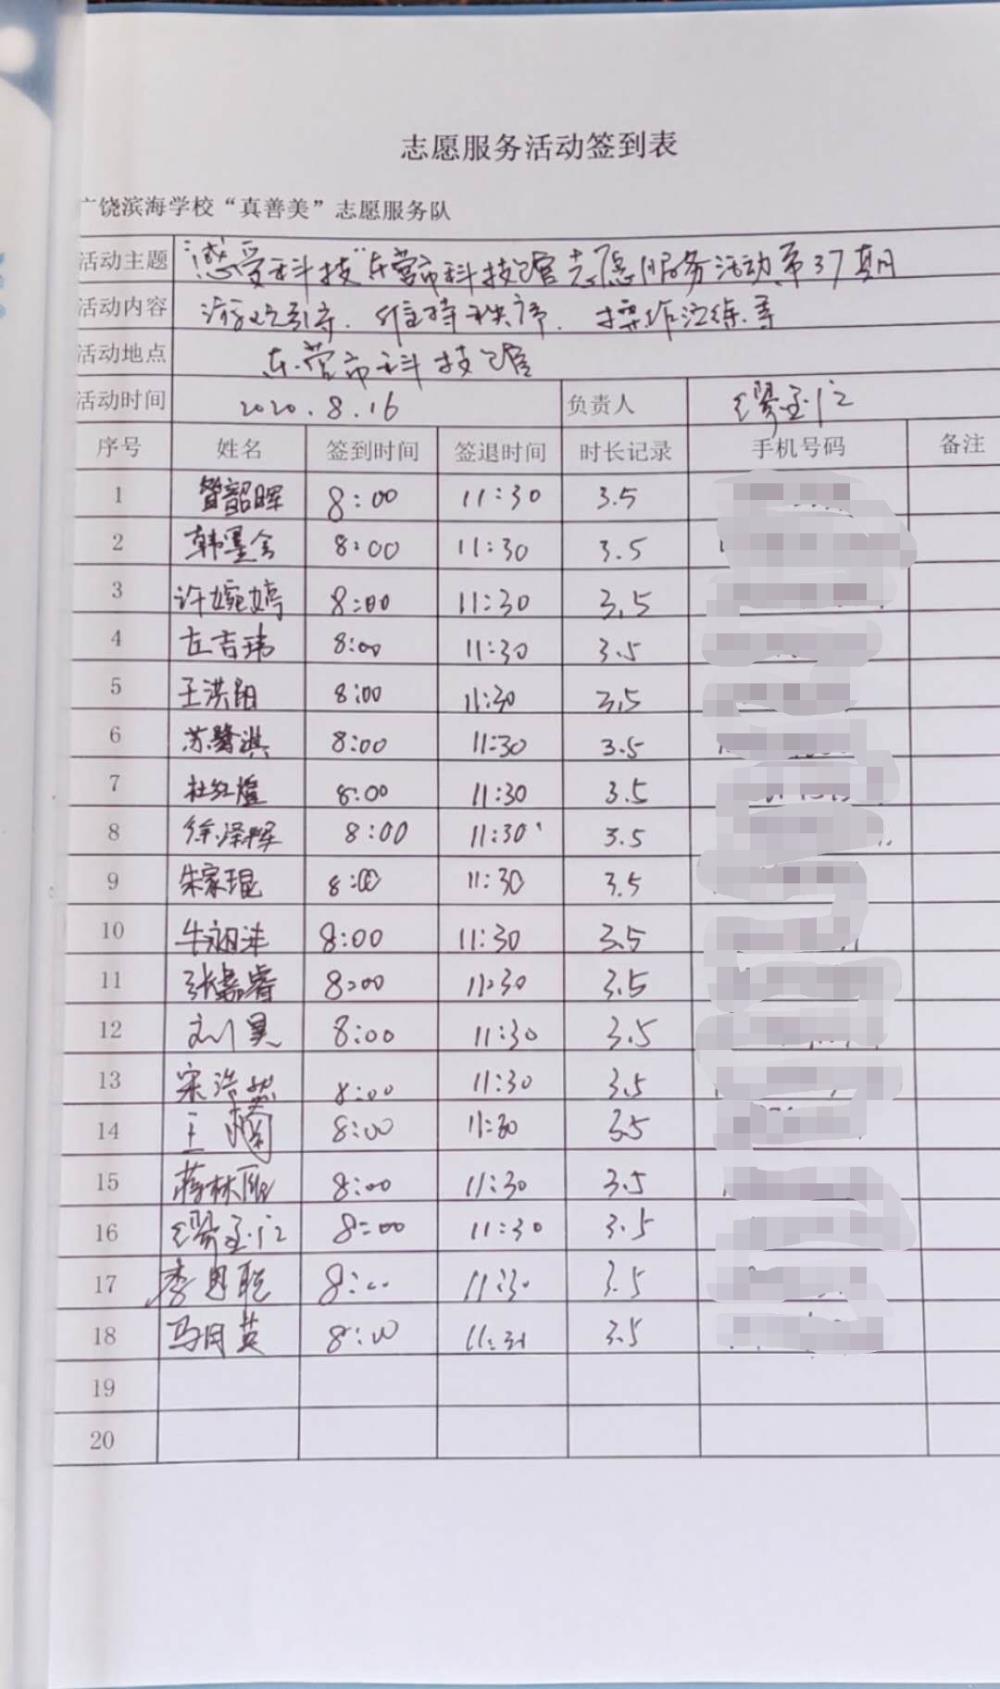 志愿服务活动签到表
广饶滨海学校“真善美”志愿服务队
活动主题 “感受科技”东营市科技馆志愿服务活动第37期
活动内容 游戏引导、维持秩序、操作演练等
活动地点 东营市科技馆
活动时间 2020.8.16 负责人
序号 姓名 签到时间 签退时间 时长记录 手机号码 备注
1 管韶晖 8:00 11:30 3.5
2 韩墨 8:00 11:30 3.5
3 许婉婷 8:00 11:30 3.5
4 左吉玮 8:00 11:30 3.5
5 王洪阳 8:00 11:30 3.5
6 苏 8:00 11:30 3.5
7 杜红煌 8:00 11:30 3.5
8 徐泽辉 8:00 11:30 3.5
9 朱家琨 8:00 11:30 3.5
10 牛 8:00 11:30 3.5
11 张嘉睿 8:00 11:30 3.5
12 刘昊 8:00 11:30 3.5
13 宋浩然 8:00 11:30 3.5
14 王 8:00 11:30 3.5
15 蒋林 8:00 11:30 3.5
16 8:00 11:30 3.5
17 李思聪 8:00 11:30 3.5
18 马月英 8:00 11:30 3.5
19
20